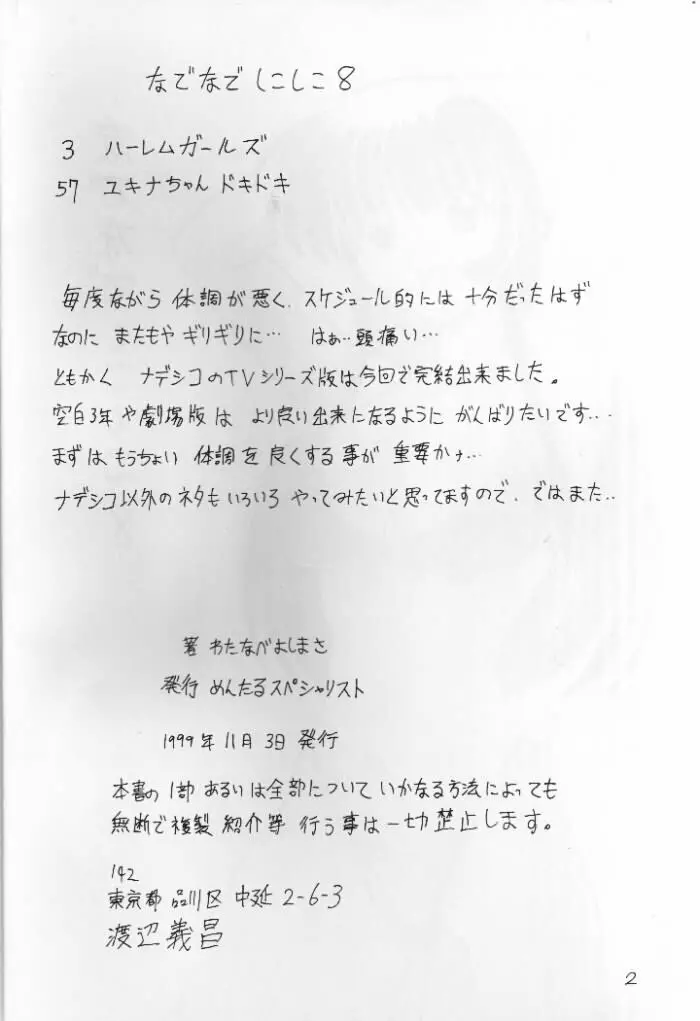 なでなでしこしこ8
3 ハーレムガールズ
57 ユキナちゃんドキドキ
毎度ながら 体調が悪く、スケジュール的には 十分だったはず
なのに またもや ギリギリに… はぁ…頭痛い…
ともかく ナデシコのTVシリーズ版は今回で完結出来ました。
空白3年や劇場版は より良い出来になるように がんばりたいです…
まずは もうちょい 体調を 良くする事が 重要かナ…
ナデシコ以外のネタも いろいろ やってみたいと思ってますので、ではまた..
著 わたなべよしまさ
発行 めんたるスペシャリスト
1999年 11月 3日 発行
本書の 1部 あるいは全部について いかなる方法によっても
無断で複製 紹介等 行う事は一切禁止します。
142
東京都 品川区 中延 2-6-3
渡辺義昌
2